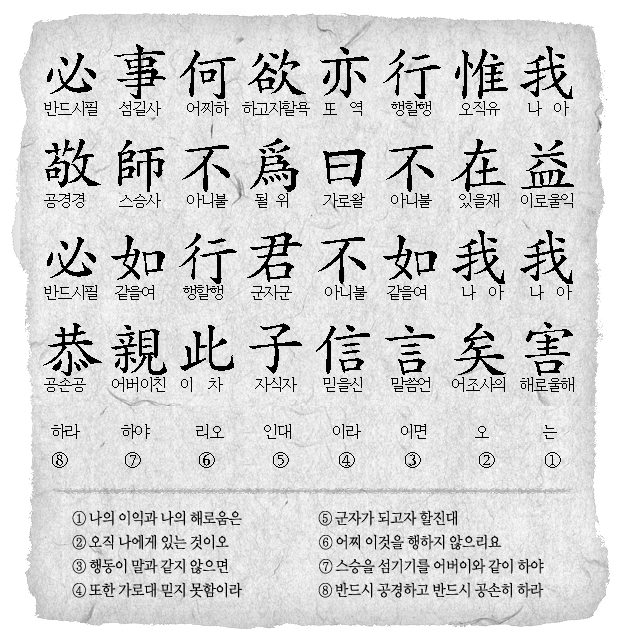 我 나 아 益 이로울익 我 나 아 害 해로울해 는 ①
惟 오직유 在 있을재 我 나 아 矣 어조사의 오 ②
行 행할행 不 아니불 如 같을여 言 말씀언 이면 ③
亦 또 역 曰 가로왈 不 아니불 信 믿을신 이라 ④
欲 하고자할욕 爲 될 위 君 군자군 子 자식자 인대 ⑤
何 어찌하 不 아니불 行 행할행 此 이 차 리오 ⑥
事 섬길사 師 스승사 如 같을여 親 어버이친 하야 ⑦
必 반드시필 敬 공경경 必 반드시필 恭 공손공 하라 ⑧
① 나의 이익과 나의 해로움은
② 오직 나에게 있는 것이오
③ 행동이 말과 같지 않으면
④ 또한 가로대 믿지 못함이라
⑤ 군자가 되고자 할진대
⑥ 어찌 이것을 행하지 않으리요
⑦ 스승을 섬기기를 어버이와 같이 하야
⑧ 반드시 공경하고 반드시 공손히 하라